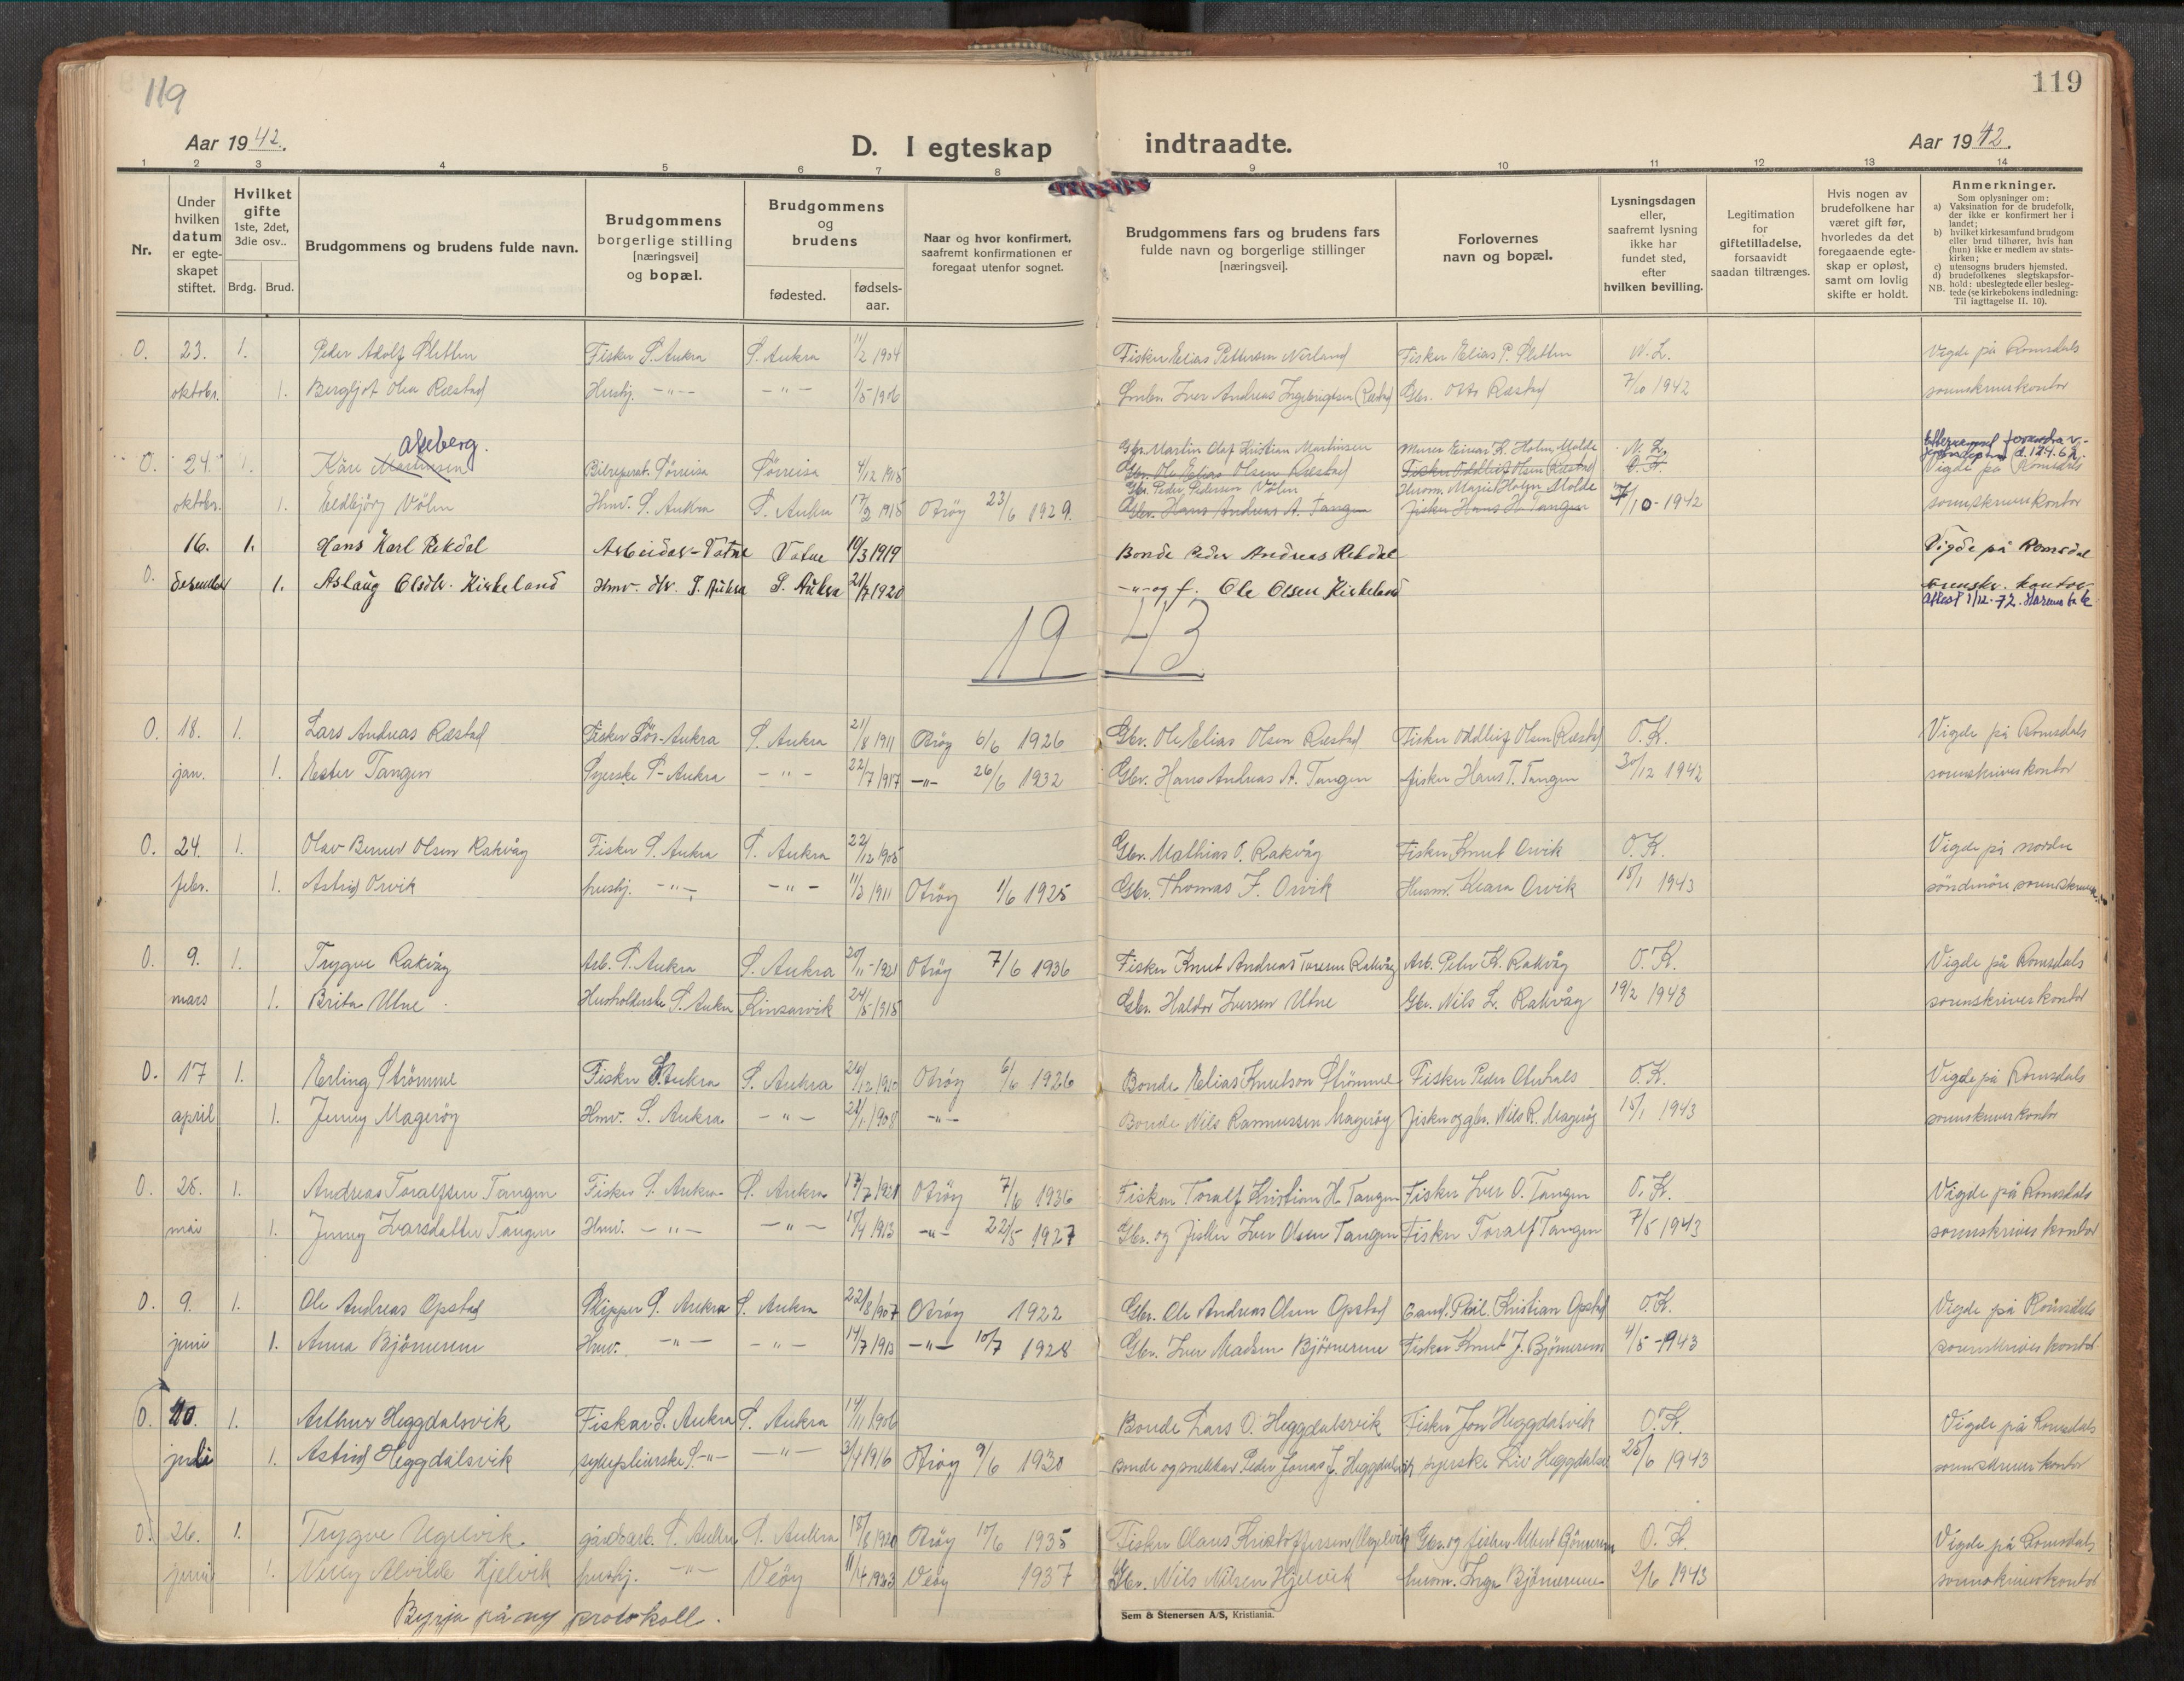 119
119
Aar 1942.
D. I egteskap indtraadte.
Aar 1942.
1 2 3 4 5 6 7 8 9 10 11 12 13 14
Nr.
Under hvilken datum er egteskapet stiftet.
Hvilket gifte 1ste, 2det, 3die osv..
Brdg. Brud.
Brudgommens og brudens fulde navn.
Brudgommens borgerlige stilling [næringsvei] og bopæl.
Brudgommens og brudens
fødested.
fødsels-aar.
Naar og hvor konfirmert, saafremt konfirmationen er foregaat utenfor sognet.
Brudgommens fars og brudens fars fulde navn og borgerlige stillinger [næringsvei].
Forlovernes navn og bopæl.
Lysningsdagen eller, saafremt lysning ikke har fundet sted, efter hvilken bevilling.
Legitimation for giftetilladelse, forsaavidt saadan tiltrænges.
Hvis nogen av brudefolkene har været gift før, hvorledes da det foregaaende egteskap er opløst, samt om lovlig skifte er holdt.
Anmerkninger.
Som oplysninger om:
a) Vaksination for de brudefolk, der ikke er konfirmert her i landet;
b) hvilket kirkesamfund brudgom eller brud tilhører, hvis han (hun) ikke er medlem av statskirken;
c) utensogns bruders hjemsted.
d) brudefolkenes slegtskapsforhold: ubeslegtede eller beslegtede (se kirkebokens indledning: Til iagttagelse II. 10).
NB.
O. 23. 1. Peder Adolf Sletten Fisker S. Aukra S. Aukra 11/2 1904 Fisker Elias Pettersen Nerland Fisker Elias P. Sletten N. L. Vigde på Romsdals
oktober. 1. Bergljot Olea Ræstad Hushj. -"- -"- 1/5 1906 Iver Andreas Ingebrigtsen (Ræstad) Gbr. Ræstad 7/10 1942 sorenskriverkontor
Akeberg.
O. 24. 1. Kåre Martinsen Bilreperat. Sørreisa Sørreisa 4/12 1915 Gbr. Martin Olaf Kristian Martinsen Murer Einar K. Holm, Molde N. L.
Gbr. Ole Elias Olsen Ræstad Fisker Oddleif Olsen (Ræstad) O. K. Vigde på Romsdals
oktober. 1. Eldbjörg Völen Hmv. S. Aukra S. Aukra 17/2 1915 Otröy 23/6 1929. Gbr. Peder Pedersen Völen Husm. Marie Holm Molde 7/10-1942 sorenskriverkontor
Gbr. Hans Andreas A. Tangen Fisker Hans H. Tangen
16. 1. Hans Karl Rekdal Arbeider-Vatne Vatne 10/3 1919 Bonde Peder Andreas Rekdal Vigde på Romsdal
O. desember 1. Aslaug Olsdtr. Kirkeland Hmv. S. Aukra S. Aukra 21/7 1920 -"- og f. Ole Olsen Kirkeland sorenskr. kontor.
Attest 1/12-72.
1943
O. 18. 1. Lars Andreas Ræstad Fisker Sör-Aukra S. Aukra 21/8 1911 Otröy 6/6 1926 Gbr. Ole Elias Olsen Ræstad Fisker Oddleif Olsen (Ræstad) O. K. Vigde på Romsdals
jan. 1. Ester Tangen Syerske S-Aukra -"- 22/7 1917 -"- 26/6 1932 Gbr. Hans Andreas A. Tangen fisker Hans T. Tangen 30/12 1942 sorenskriverkontor
O. 24. 1. Olav Berner Olsen Rakvåg Fisker S. Aukra S. Aukra 22/12 1905 Gbr. Mathias O. Rakvåg Fisker Knut Orvik O. K. Vigde på nordre
febr. 1. Astrid Orvik hushj. -"- -"- 11/3 1911 Otröy 1/6 1925 Gbr. Thomas F. Orvik Husm. Klara Orvik 15/1 1943 söndmöre sorenskriver
O. 9. 1. Trygve Rakvåg Arb. S. Aukra S. Aukra 20/11-1921 Otröy 7/6 1936 Fisker Knut Andreas Toresen Rakvåg Arb. Peter K. Rakvåg O. K. Vigde på Romsdals
mars 1. Brita Utne Husholderske S. Aukra Kinsarvik 24/5 1915 Gbr. Haldor Iversen Utne Gbr. Nils L. Rakvåg 19/2 1943 sorenskriverkontor
O. 17 1. Erling Strömme Fisker S. Aukra S. Aukra 26/12 1910 Otröy 6/6 1926 Bonde Elias Knutson Strömme Fisker Peder Oterhals O. K. Vigde på Romsdals
april 1. Jenny Magerøy Hmv. S. Aukra -"- 28/1 1908 -"- Bonde Nils Rasmussen Magerøy fisker og gbr. Nils R. Magerøy 15/1 1943 sorenskriverkontor
O. 25. 1. Andreas Toralfsen Tangen Fisker S. Aukra S. Aukra 17/7 1921 Otröy 7/6 1936 Fisker Toralf Kristian H. Tangen Fisker Iver O. Tangen O. K. Vigde på Romsdals
mai 1. Jenny Ivarsdatter Tangen Hmv. -"- -"- 15/4 1913 -"- 22/5 1927 Gbr. og fisker Iver Olsen Tangen Fisker Toralf Tangen 7/5 1943 sorenskriverkontor
O. 9. 1. Ole Andreas Opstad Skipper S. Aukra S. Aukra 22/8 1907 Otröy 1922 Gbr. Ole Andreas Olsen Opstad Cand. Phil. Kristian Opstad O. K. Vigde på Romsdals
juni 1. Anna Björnerem Hmv. -"- -"- 14/7 1913 -"- 10/7 1928 Gbr. Iver Madsen Björnerem Fisker Knut J. Björnerem 4/5-1943 sorenskriverkontor
O. 10. 1. Arthur Heggdalsvik Fiskar S. Aukra S. Aukra 14/11 1906 Bonde Lars O. Heggdalsvik Fisker Jon Heggdalsvik O. K. Vigde på Romsdals
juli 1. Astrid Heggdalsvik sykepleierske S -"- -"- 3/4 1916 Otröy 9/6 1930 Bonde og snekker Peder Jonas J. Heggdalsvik syerske Liv Heggdalsv 25/6 1943 sorenskriverkontor
O. 26. 1. Trygve Ugelvik gårdsarb. S. Aukra S. Aukra 15/8 1920 Otröy 10/6 1935 Fisker Olaus Kristoffersen Ugelvik Gbr. og fisker Albert Björnerem O. K. Vigde på Romsdals
juni 1. Nelly Alvilde Hjelvik hushj. -"- Veöy 11/4 1923 Veöy 1937 Gbr. Nils Nilsen Hjelvik husm. Inga Björnerem 2/6 1943 sorenskriverkontor
Byrja på ny protokoll.
Sem & Stenersen A/S, Kristiania.